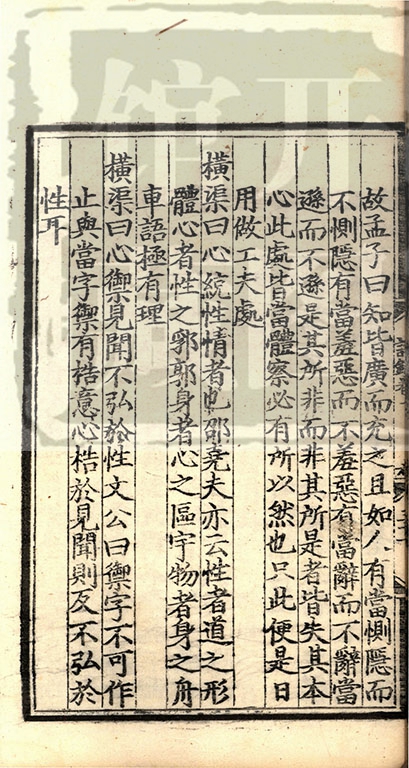 故孟子曰知皆廣而充之且如人有當惻隠而
不惻隠有當羞惡而不羞惡有當辭而不辭當
遜而不遜是其所非而非其所是者皆失其本
心此處皆當體察必有所以然也只此便是日
用做工夫處
橫渠曰心統性情者也邵堯夫亦云性者道之形
體心者性之郛郭身者心之區宇物者身之舟
車語極有理
橫渠曰心禦見聞不弘於性文公曰禦字不可作
止與當字禦有梏意心梏於見聞則反不弘於
性耳